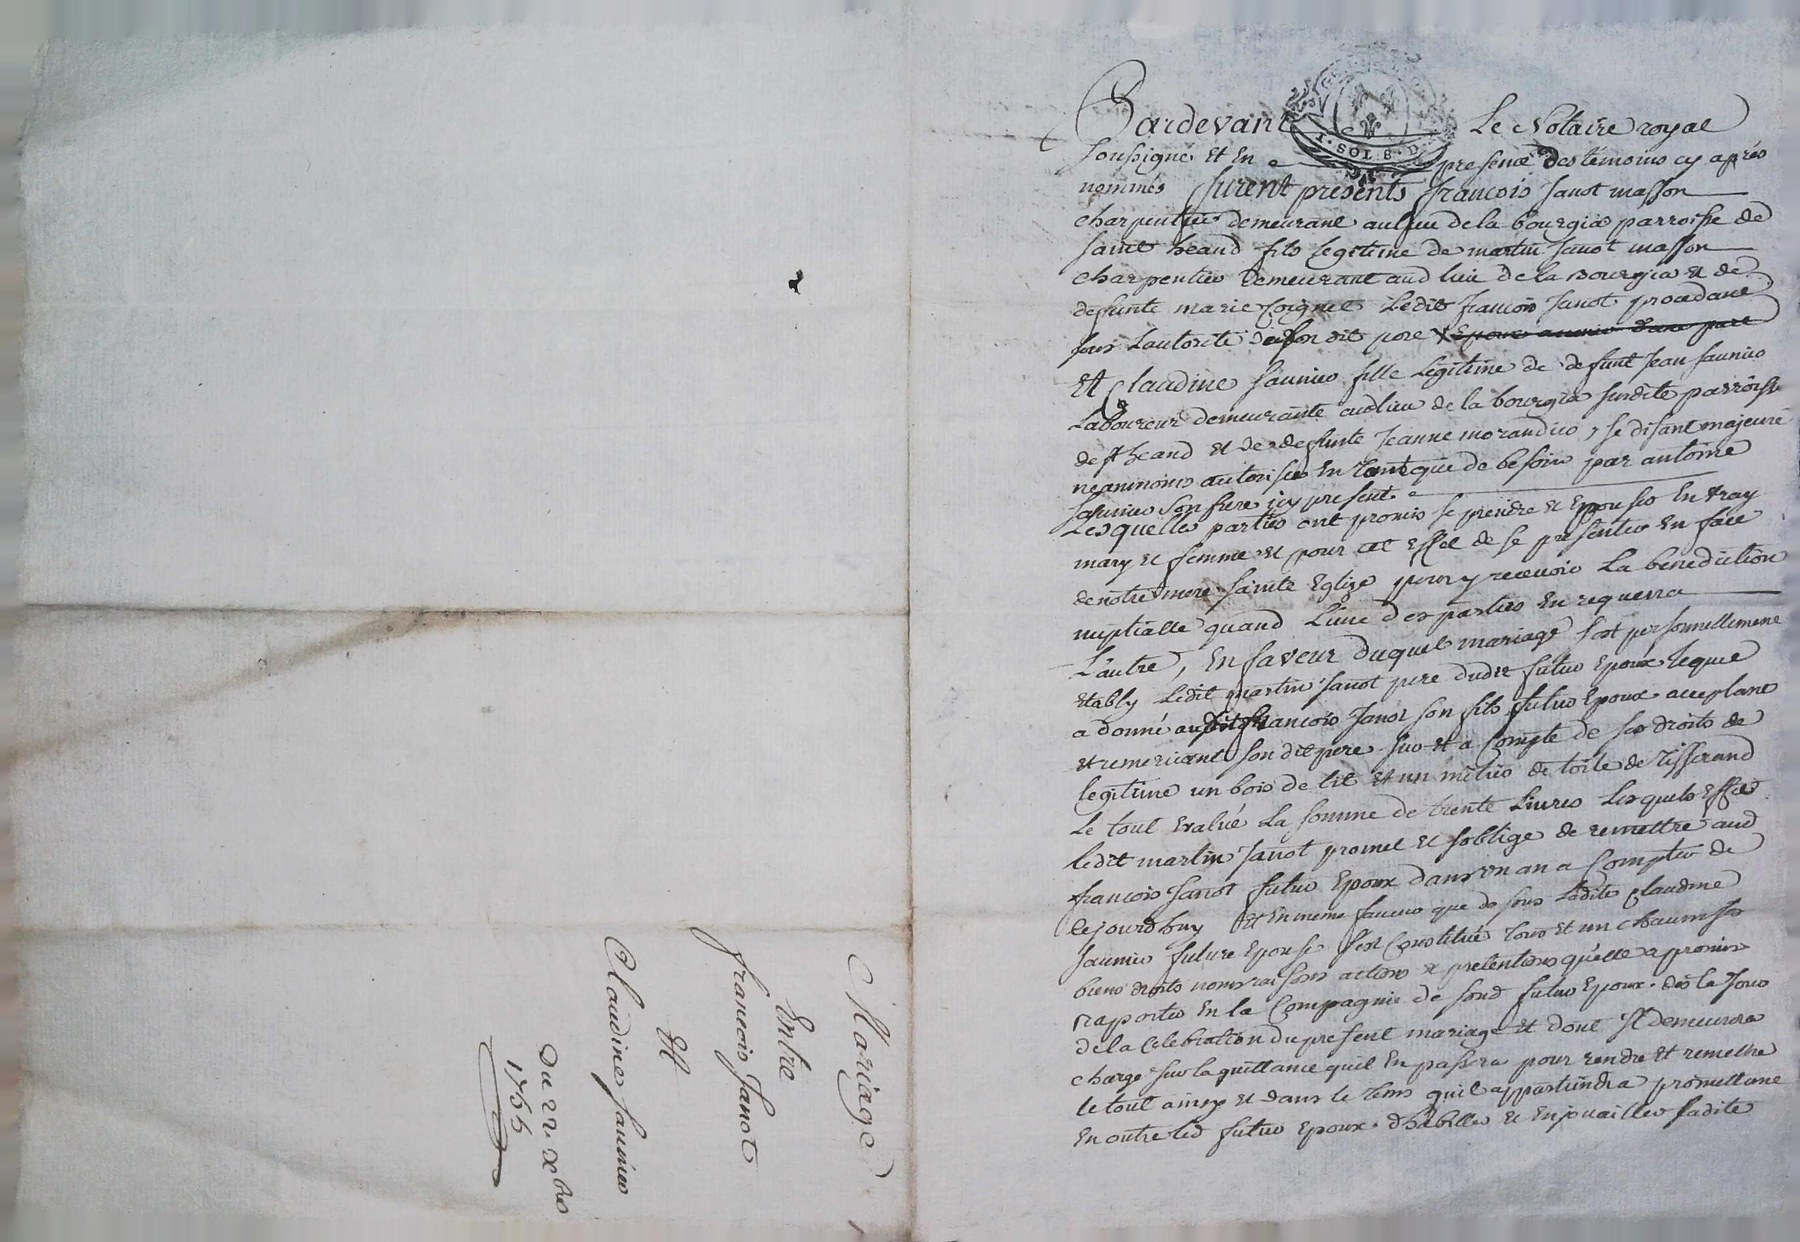 Mariage
Entre
francois Janot
Et
Claudine saunier
Du 22 xbre
1755
Pardevant Le Notaire royal
1. SOL 8. D.
soussigné et En presence des témoins cy aprés
nommés furent presents francois Janot masson
charpentier demeurant au lieu de la bourgia parroisse de
saint heand fils legitime de martin Janot masson
charpentier demeurant aud lieu de la Bourgia et de
defunte marie Ledit francois Janot procedant
sous Lautorité de son dit pere
Et Claudine saunier fille Legitime de defunt Jean saunier
Laboureur demeurante audlieu de la bourgia susdite parroisse
de st heand et de defunte Jeanne morandier, se disant majeure
neanmoins autorisée En tant que de besoin par antoine
saunier son frere icy present.
Lesquelles parties ont promis se prendre et Epouser En vray
mary et femme et pour cet Effet de se presenter En face
de notre mere sainte Eglize pour y recevoir La benediction
nuptialle quand L'une des parties En requerra
L'autre, En faveur duquel mariage s'est personnellement
Etably Ledit martin Janot pere dudit futur Epoux Lequel
a donné audit francois Janot son fils futur Epoux acceptant
et remerciant son dit pere sur et a Compte de ses droits de
legitime un bois de lit et un métier de toile de Tisserand
Le tout Evalué La somme de trente Livres Lesquels Effets
ledit martin Janot promet et soblige de remettre aud
francois Janot futur Epoux dans un an a Compter de
cejourdhuy Et En meme faveur que dessus Ladite Claudine
saunier future Epouse s'est Constitué tous et un chacuns ses
biens droits noms raisons actions et pretentions qu'elle a promis
raporter En la Compagnie de sond futur Epoux des le Jour
de la Celebration du present mariage et dont Il demeurera
charge sur la quittance quil En passera pour rendre et remettre
le tout a et dans le tems quil appartiendra promettant
En outre led futur Epoux d'habiller et Enjouailler sadite